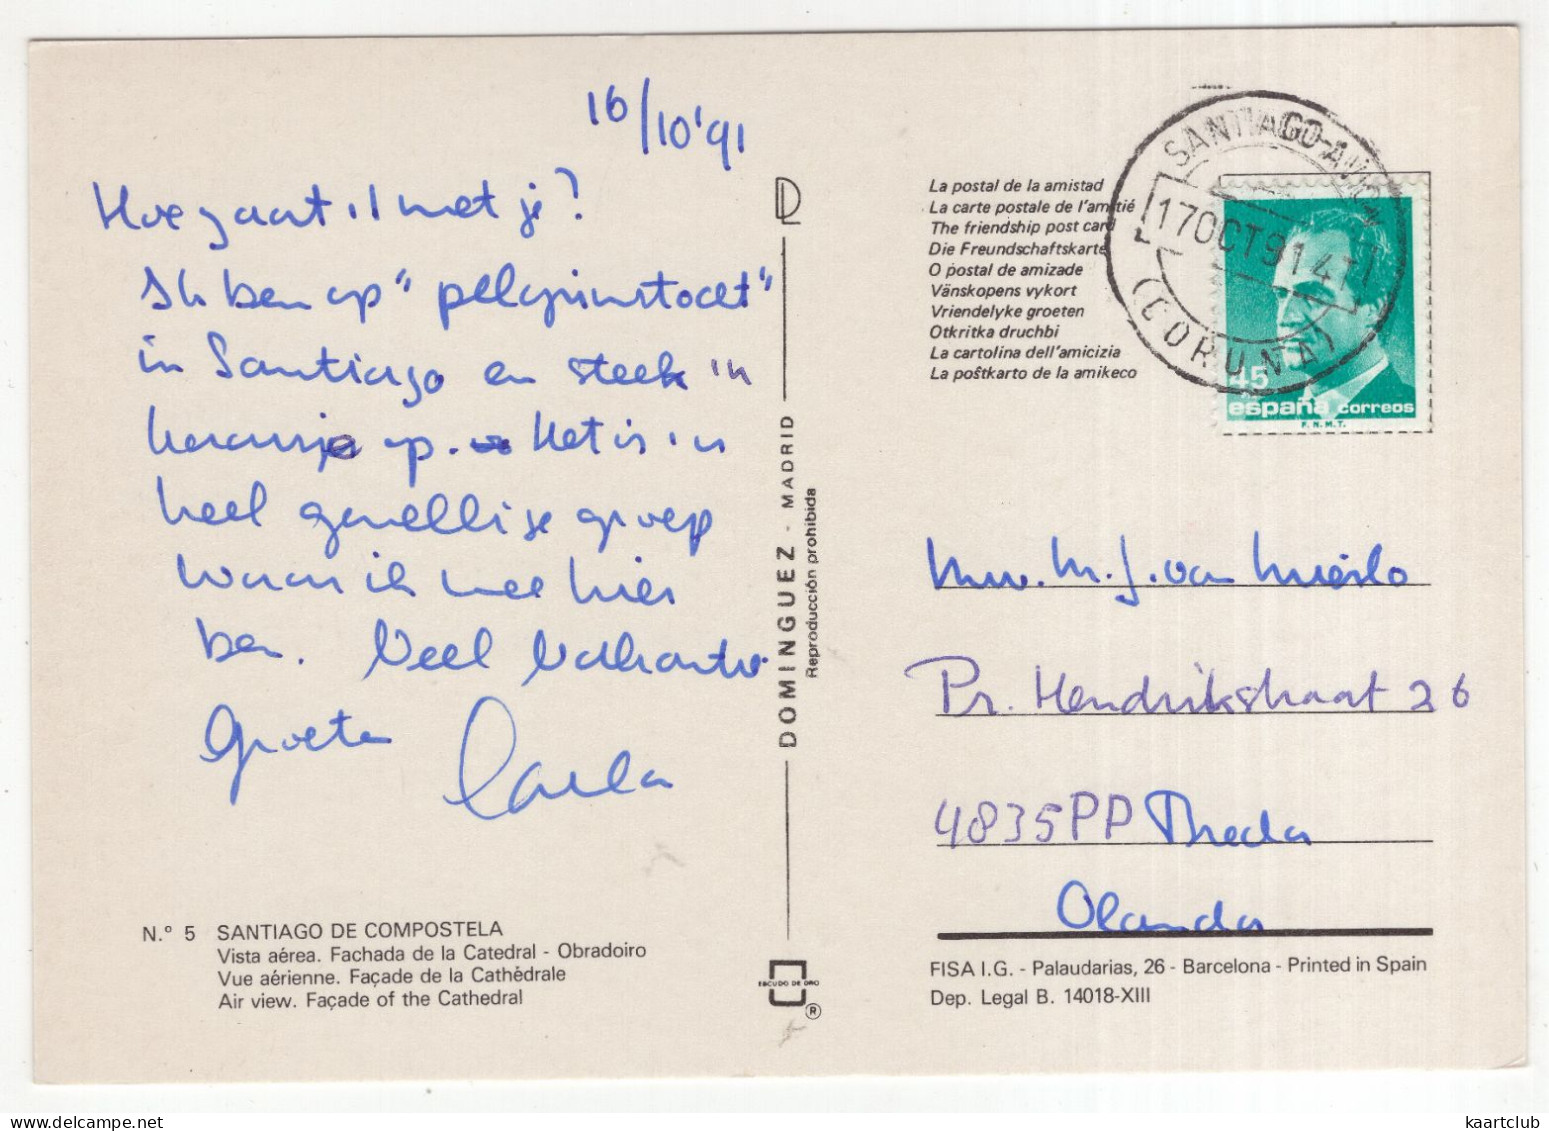 16/10'91
Hoe gaat il met je?
Ik ben op "pelgrimstocht"
in Santiago en steek 'n
kaarsje op. Het is 'n
heel gezellige groep
waar ik mee hier
ben. Veel vakantie
groeten Carla
N.º 5 SANTIAGO DE COMPOSTELA
Vista aérea. Fachada de la Catedral - Obradoiro
Vue aérienne. Façade de la Cathédrale
Air view. Façade of the Cathedral
DOMINGUEZ - MADRID
Reproducción prohibida
ESCUDO DE ORO
®
La postal de la amistad
La carte postale de l'amitié
The friendship post card
Die Freundschaftskarte
O postal de amizade
Vänskopens vykort
Vriendelyke groeten
Otkritka druchbi
La cartolina dell'amicizia
La poŝtkarto de la amikeco
SANTIAGO-AVION
17OCT91
(CORUÑA)
45
españa correos
F.N.M.T.
Mw. M. J. van Mierlo
Pr. Hendrikstraat 26
4835PP Breda
Olanda
FISA I.G. - Palaudarias, 26 - Barcelona - Printed in Spain
Dep. Legal B. 14018-XIII
kaartclub